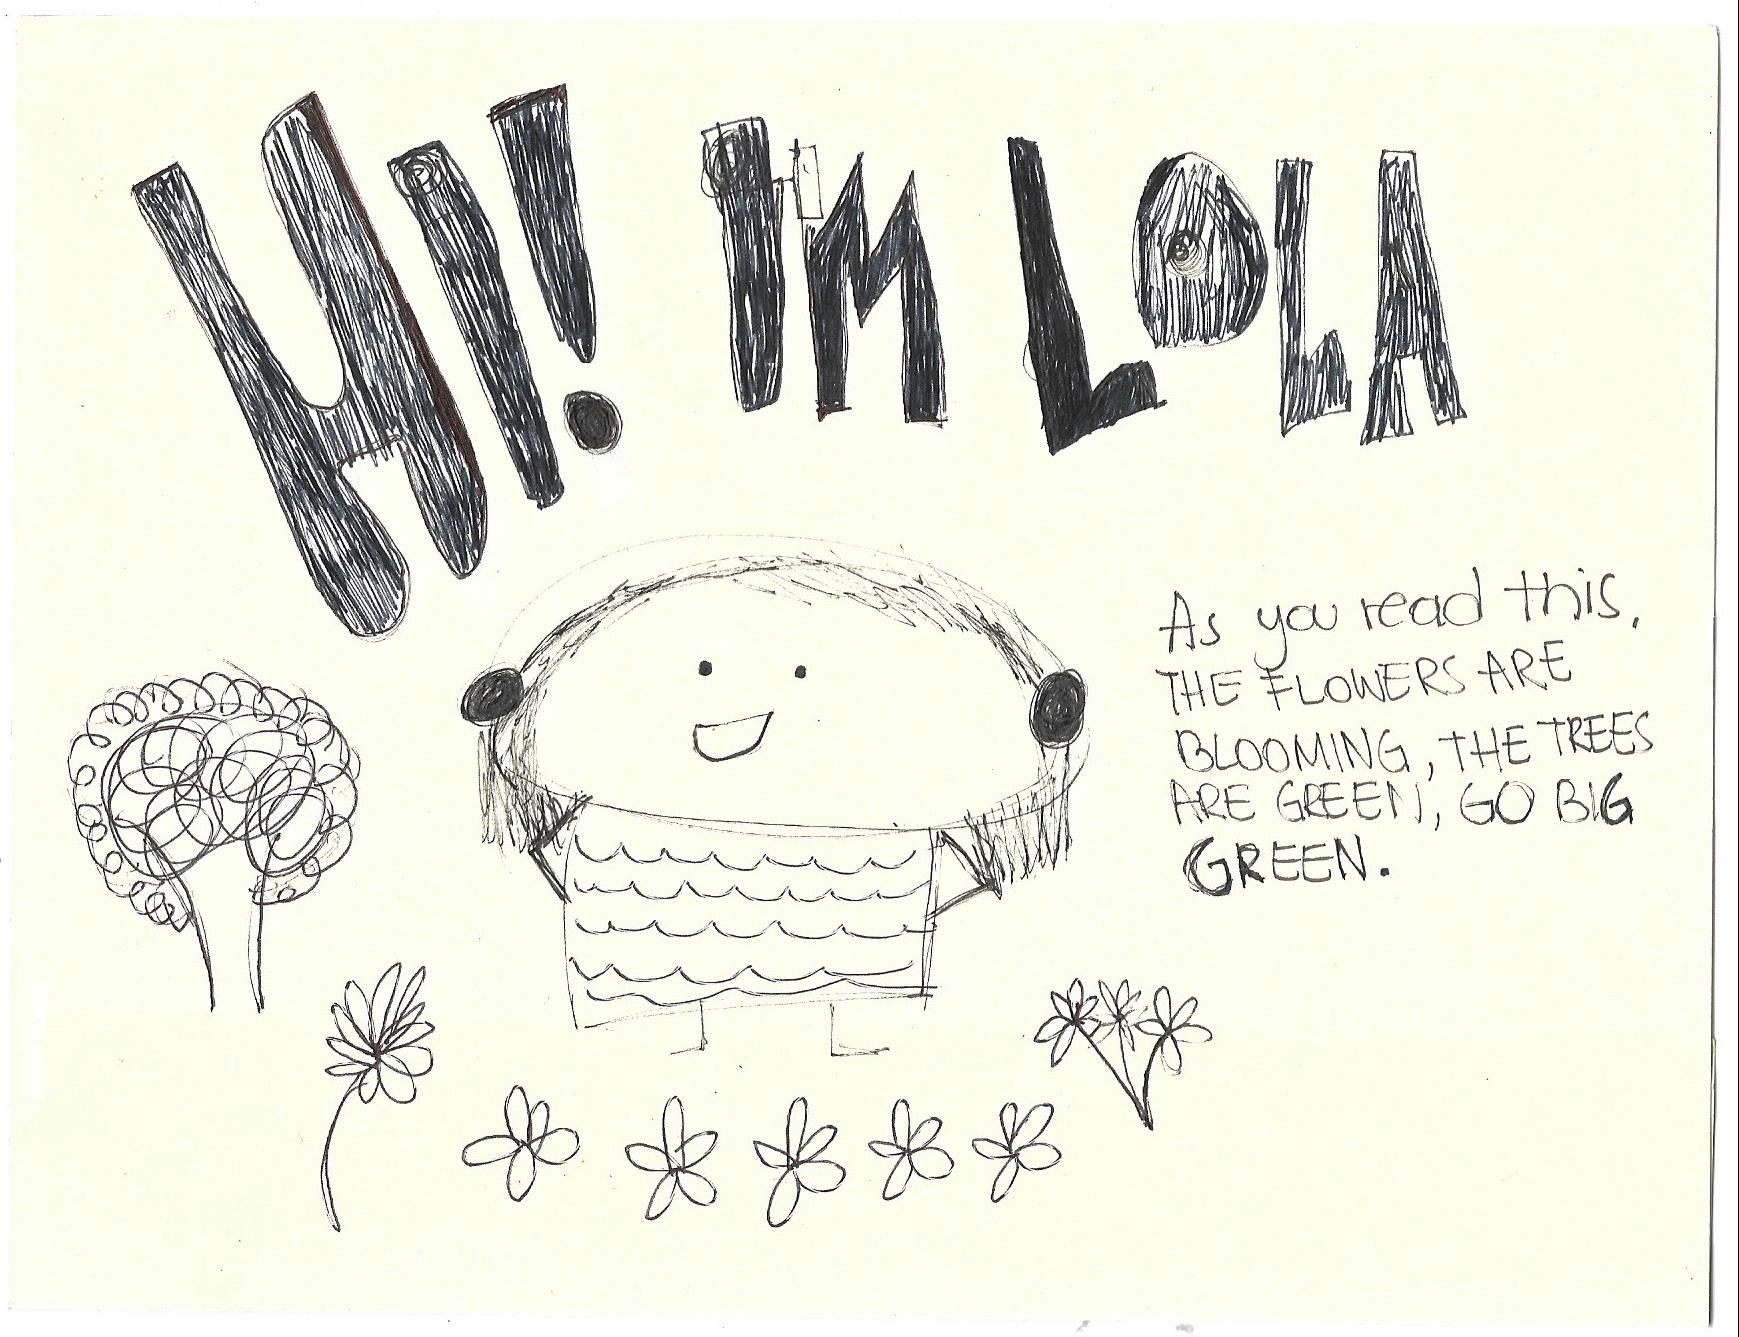 HI! I'M LOLA
As you read this,
THE FLOWERS ARE
BLOOMING, THE TREES
ARE GREEN, GO BIG
GREEN.